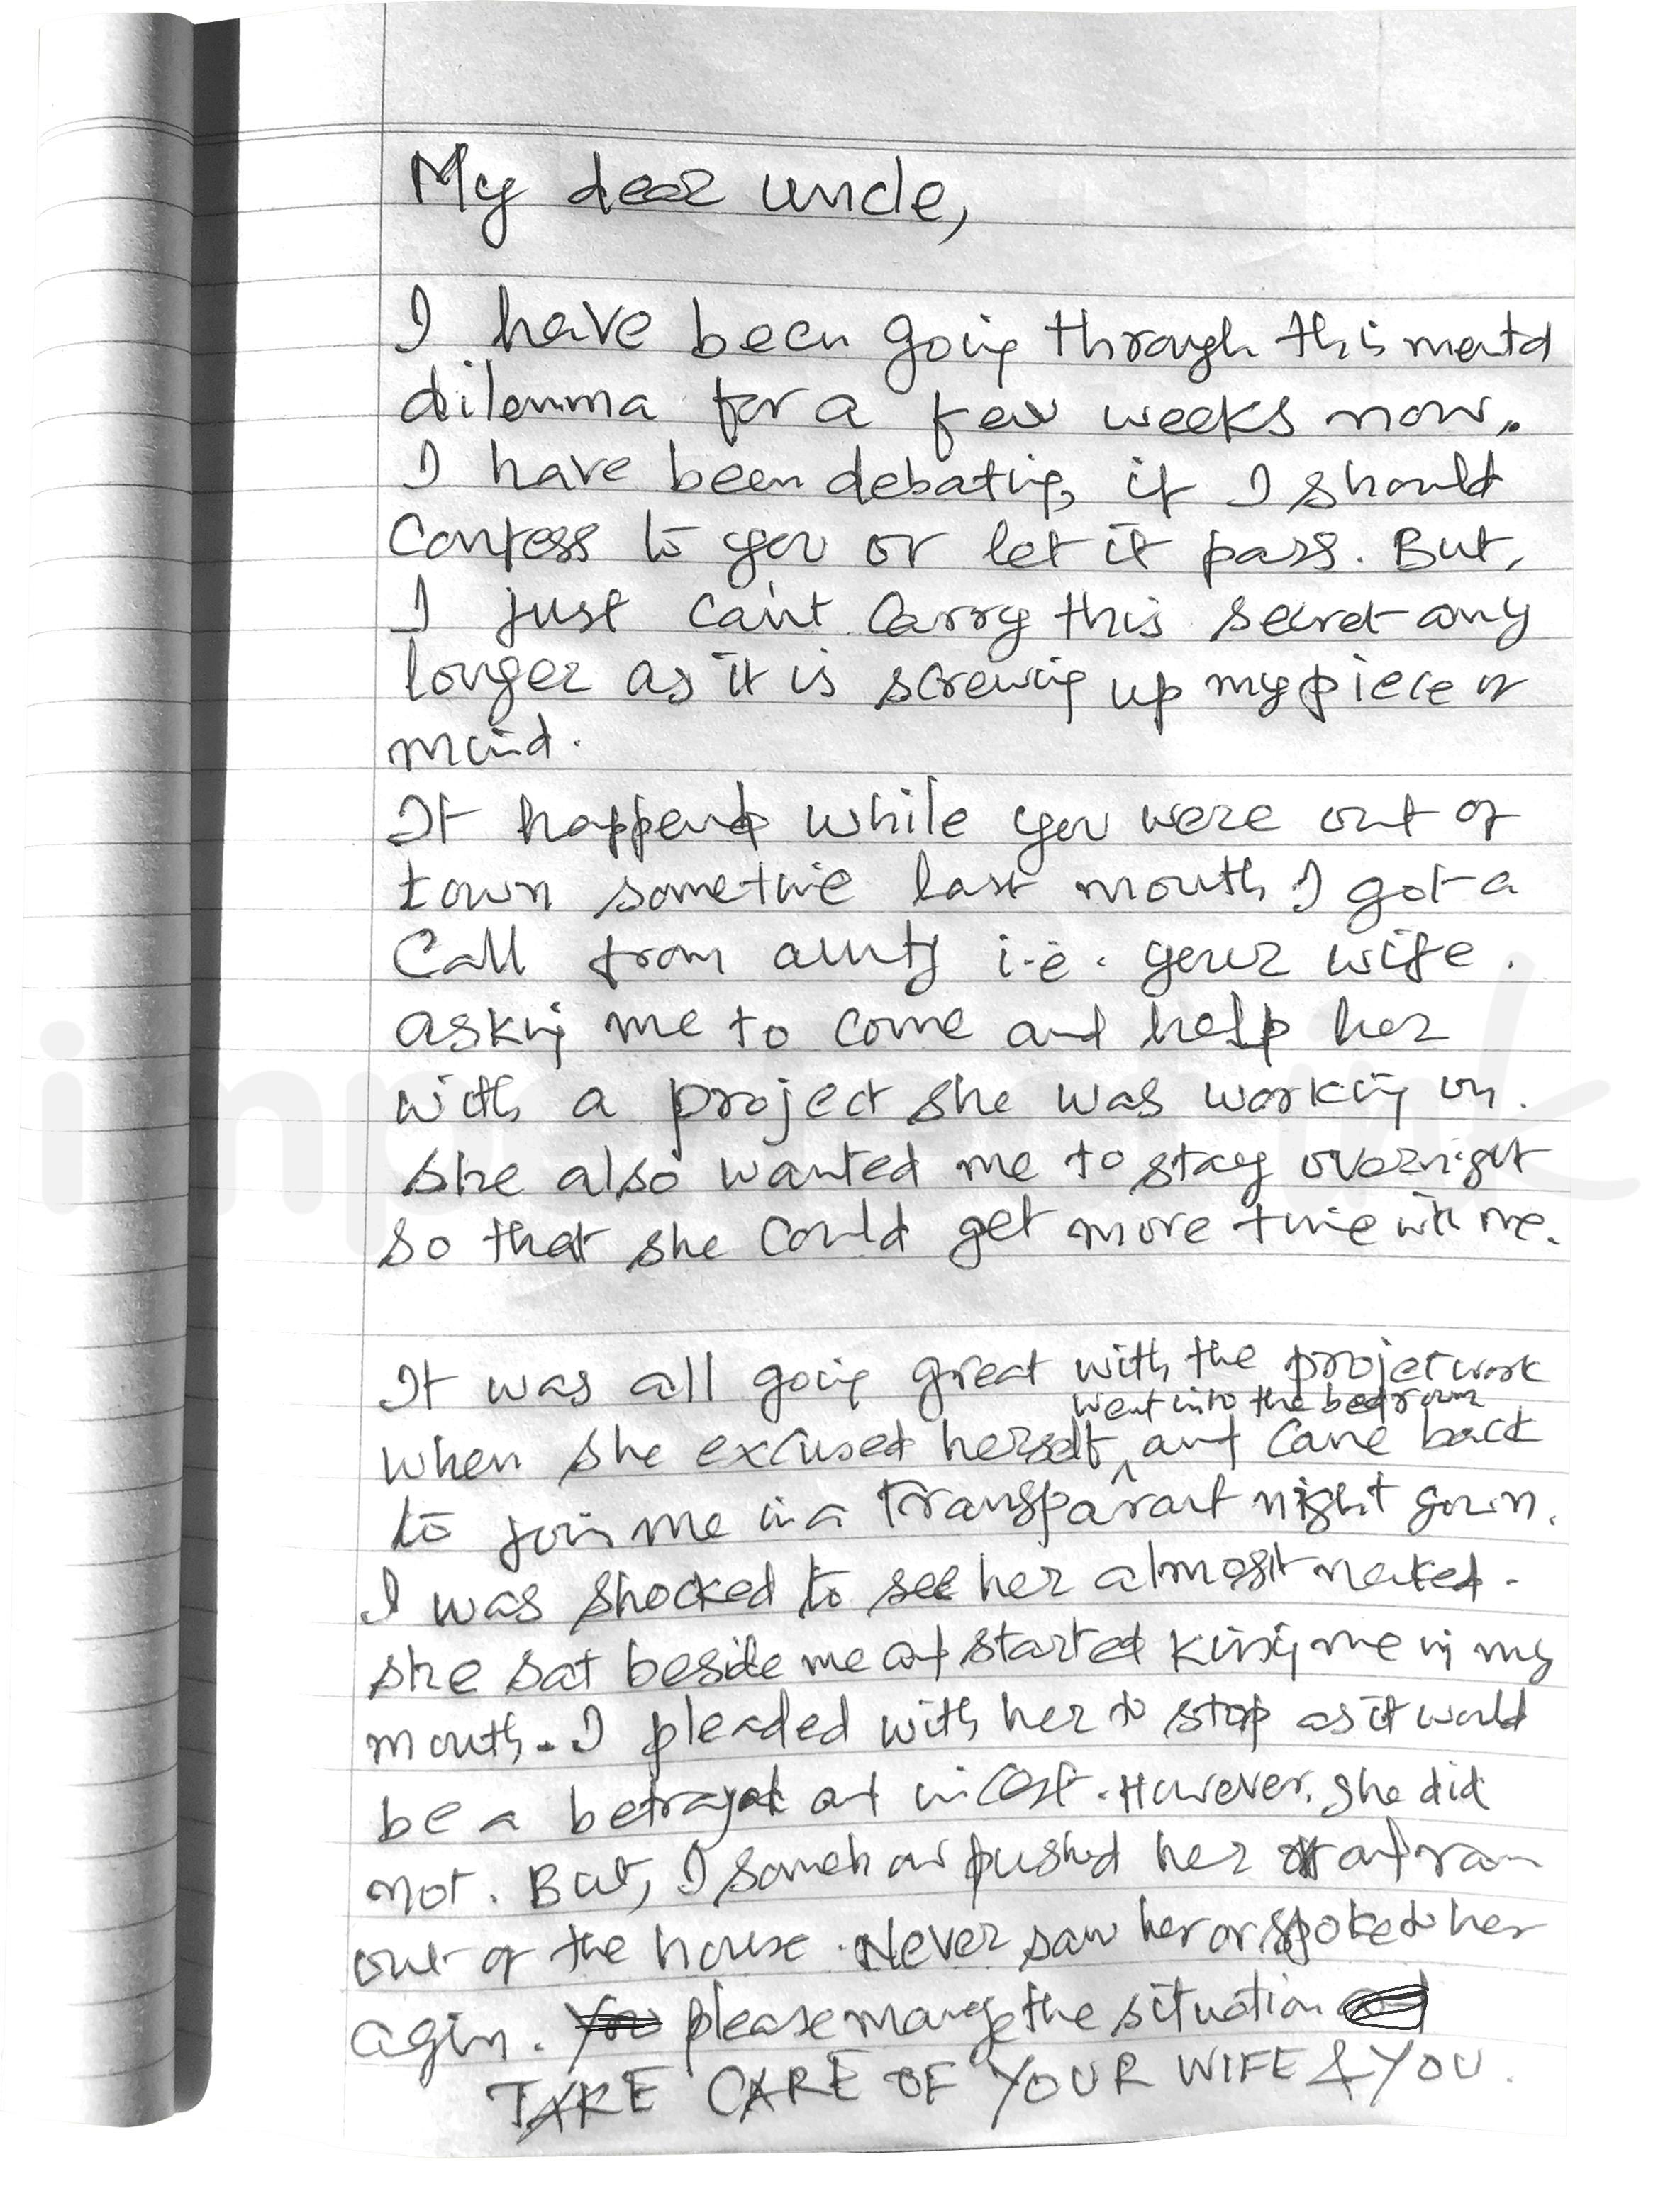 My dear uncle,
I have been going through this mental
dilemma for a few weeks now.
I have been debating, if I should
Confess to you or let it pass. But,
I just can't carry this secret any
longer as it is screwing up my piece of
mind.
It happend while you were out of
town sometime last month, I got a
Call from aunty i.e. your wife.
asking me to come and help her
with a project she was working on.
She also wanted me to stay overnight
so that she could get more time with me.
It was all going great with the projet work
went into the bedroom
when she excused herself ^ and came back
to join me in a transparant night gown.
I was shocked to see her almost naked.
she sat beside me and started kissing me in my
mouth. I pleaded with her to stop as it would
be a betrayal and incest. However, she did
not. But, I somehow pushed her and ran
out of the house. Never saw her or spoke to her
agin. please manage the situation
TAKE CARE OF YOUR WIFE & YOU.
imperfect ink